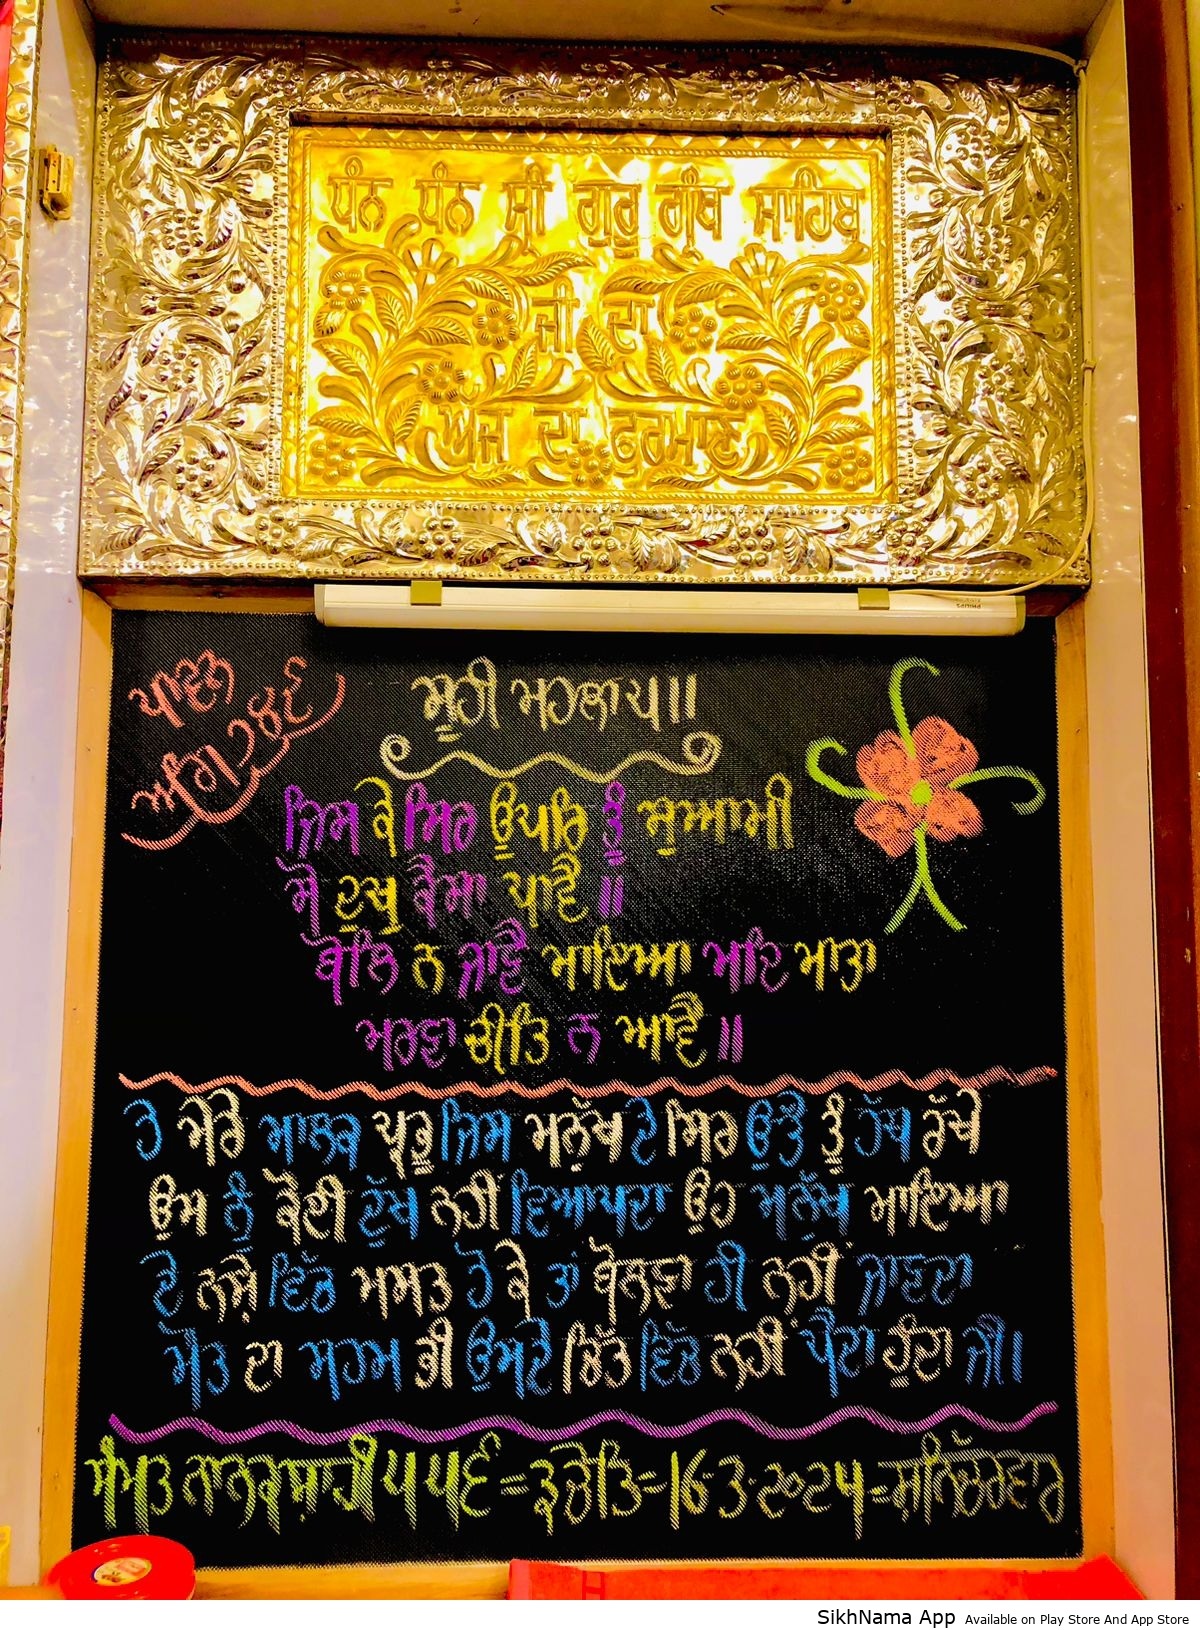 ਧੰਨ ਧੰਨ ਸ੍ਰੀ ਗੁਰੂ ਗ੍ਰੰਥ ਸਾਹਿਬ
ਜੀ ਦਾ
ਅੱਜ ਦਾ ਫੁਰਮਾਣ
PHILIPS
ਪਾਵਨ
ਅੰਗ ੭੪੯
ਸੂਹੀ ਮਹਲਾ ੫॥
ਜਿਸ ਕੇ ਸਿਰ ਊਪਰਿ ਤੂੰ ਸੁਆਮੀ
ਸੋ ਦੁਖੁ ਕੈਸਾ ਪਾਵੈ॥
ਬੋਲਿ ਨ ਜਾਵੈ ਮਾਇਆ ਮਦਿ ਮਾਤਾ
ਮਰਣਾ ਚੀਤਿ ਨ ਆਵੈ॥
ਹੇ ਮੇਰੇ ਮਾਲਕ ਪ੍ਰਭੂ ਜਿਸ ਮਨੁੱਖ ਦੇ ਸਿਰ ਉਤੇ ਤੂੰ ਹੱਥ ਰੱਖੇ
ਉਸ ਨੂੰ ਕੋਈ ਦੁੱਖ ਨਹੀਂ ਵਿਆਪਦਾ ਉਹ ਮਨੁੱਖ ਮਾਇਆ
ਦੇ ਨਸ਼ੇ ਵਿੱਚ ਮਸਤ ਹੋ ਕੇ ਤਾਂ ਬੋਲਣਾ ਹੀ ਨਹੀਂ ਜਾਣਦਾ
ਮੌਤ ਦਾ ਸਹਮ ਭੀ ਉਸਦੇ ਚਿੱਤ ਵਿੱਚ ਨਹੀਂ ਪੈਦਾ ਹੁੰਦਾ ਜੀ।
ਸੰਮਤ ਨਾਨਕਸ਼ਾਹੀ ੫੫੬=੩ ਚੇਤਿ=16-3-੨੦੨੪=ਸ਼ਨਿੱਚਰਵਾਰ
SikhNama App Available on Play Store And App Store